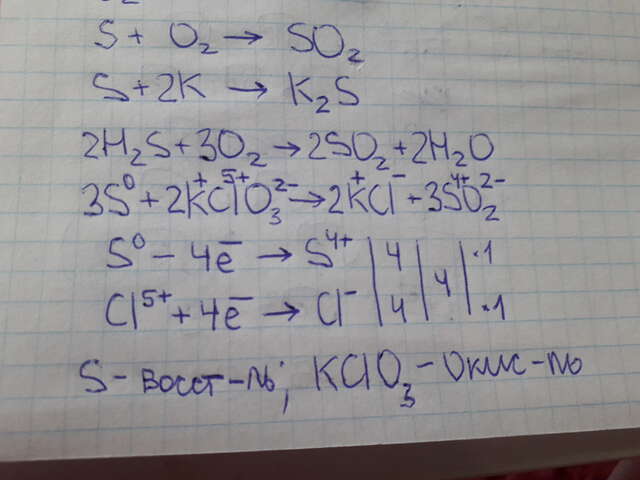 S + O₂ → SO₂
S + 2K → K₂S
2H₂S + 3O₂ → 2SO₂ + 2H₂O
3S⁰ + 2K⁺Cl⁵⁺O₃²⁻ → 2K⁺Cl⁻ + 3S⁴⁺O₂²⁻
S⁰ - 4e̅ → S⁴⁺ | 4 | 4 | ·1
Cl⁵⁺ + 4e̅ → Cl⁻ | 4 | | ·1
S - восст-ль; KClO₃ - Окис-ль